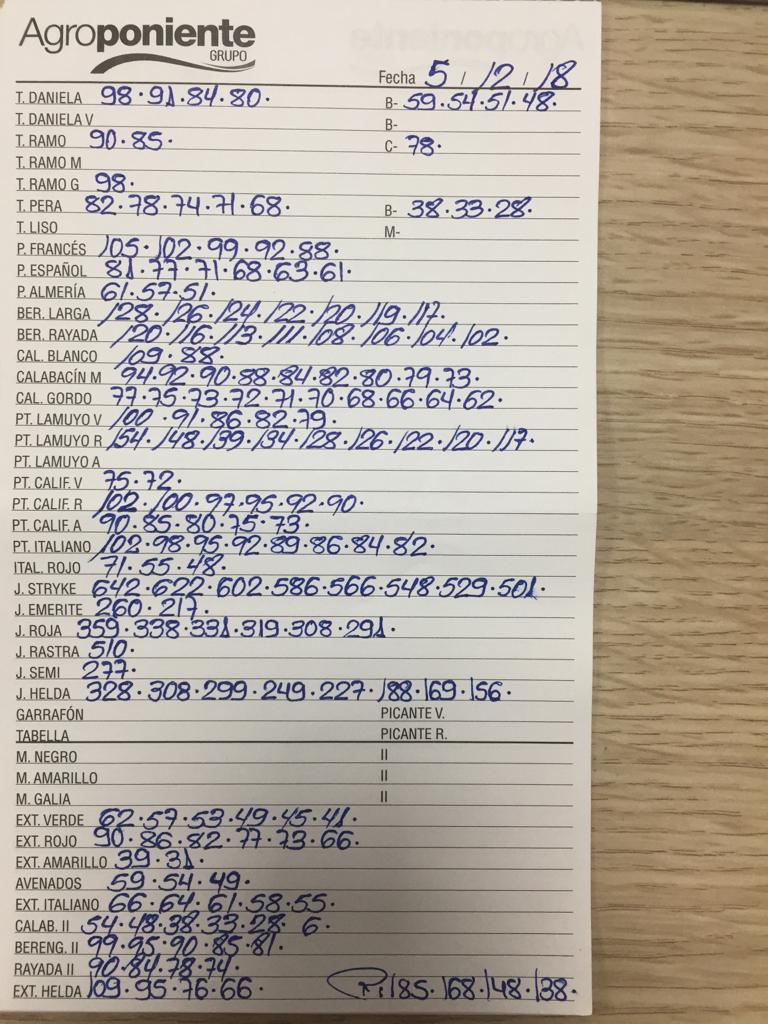 Agroponiente
GRUPO
Fecha 5 / 12 / 18
T. DANIELA 98·91·84·80· B- 59·54·51·48·
T. DANIELA V B-
T. RAMO 90·85· C- 78·
T. RAMO M
T. RAMO G 98·
T. PERA 82·78·74·71·68· B- 38·33·28·
T. LISO M-
P. FRANCÉS 105·102·99·92·88·
P. ESPAÑOL 81·77·71·68·63·61·
P. ALMERÍA 61·57·51·
BER. LARGA 128·126·124·122·120·119·117·
BER. RAYADA 120·116·113·111·108·106·104·102·
CAL. BLANCO 109·88·
CALABACÍN M 94·92·90·88·84·82·80·79·73·
CAL. GORDO 77·75·73·72·71·70·68·66·64·62·
PT. LAMUYO V 100·91·86·82·79·
PT. LAMUYO R 154·148·139·134·128·126·122·120·117·
PT. LAMUYO A
PT. CALIF. V 75·72·
PT. CALIF. R 102·100·97·95·92·90·
PT. CALIF. A 90·85·80·75·73·
PT. ITALIANO 102·98·95·92·89·86·84·82·
ITAL. ROJO 71·55·48·
J. STRYKE 642·622·602·586·566·548·529·501·
J. EMERITE 260·217·
J. ROJA 359·338·331·319·308·291·
J. RASTRA 510·
J. SEMI 277·
J. HELDA 328·308·299·249·227·188·169·156·
GARRAFÓN PICANTE V.
TABELLA PICANTE R.
M. NEGRO II
M. AMARILLO II
M. GALIA II
EXT. VERDE 62·57·53·49·45·41·
EXT. ROJO 90·86·82·77·73·66·
EXT. AMARILLO 39·31·
AVENADOS 59·54·49·
EXT. ITALIANO 66·64·61·58·55·
CALAB. II 54·48·38·33·28· 6·
BERENG. II 99·95·90·85·81·
RAYADA II 90·84·78·74·
EXT. HELDA 109·95·76·66· 185·168·148·138·